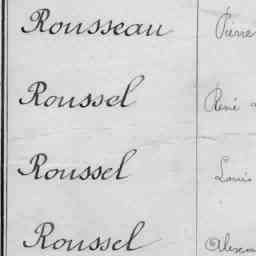 Rousseau Pierre
Roussel René
Roussel Louis
Roussel